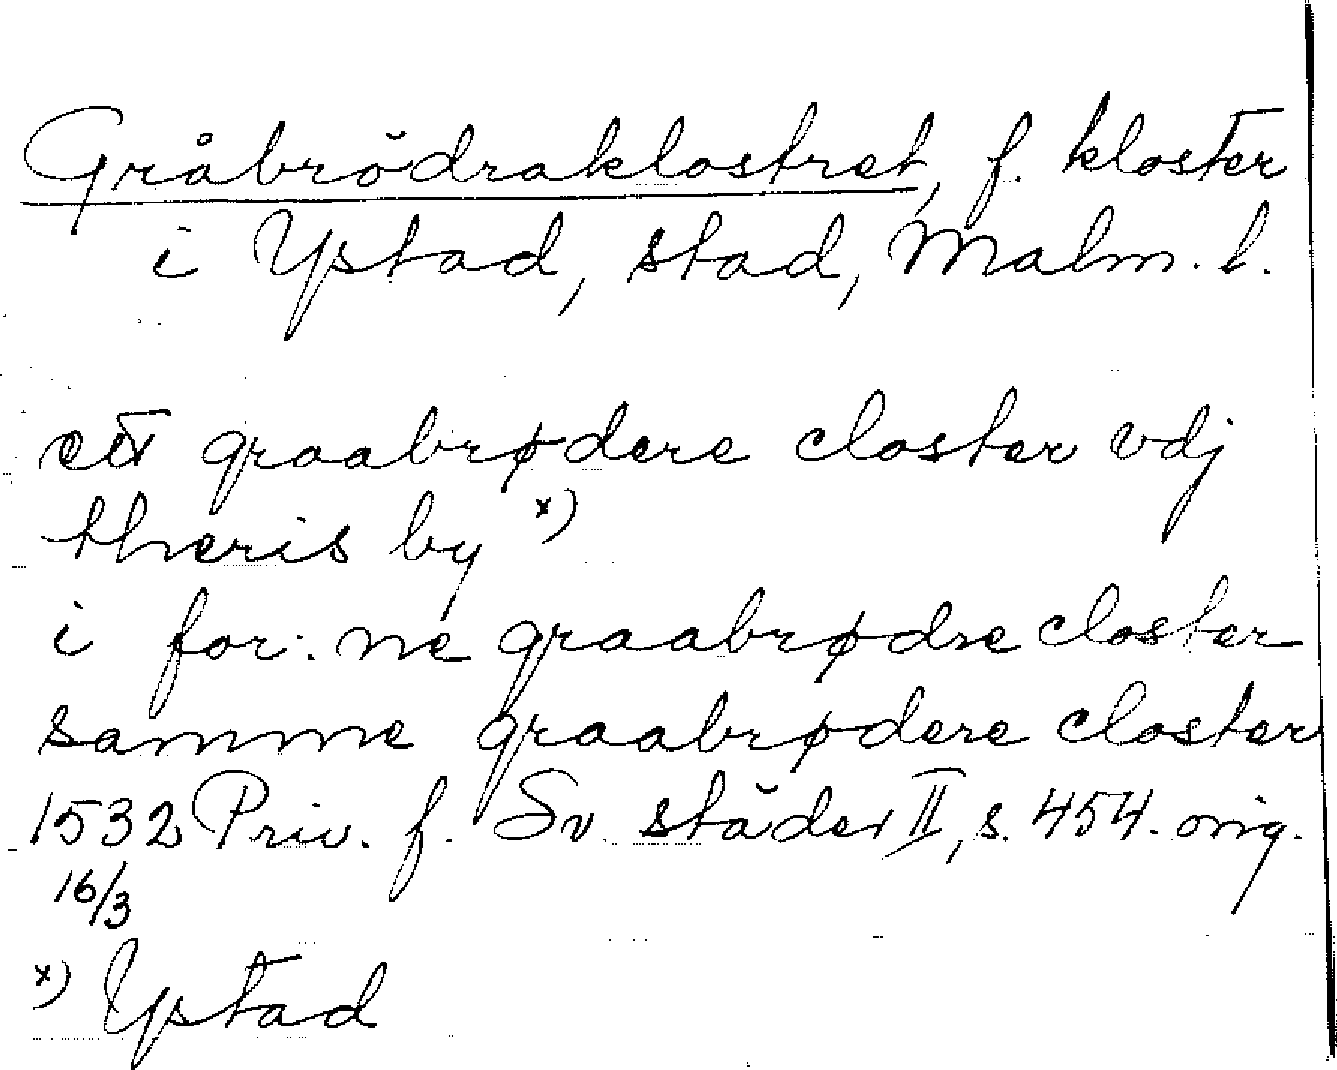 Gråbrödraklostret, f. kloster
i Ystad, stad, Malm. l.
ett graabrødere closter vdj
theris by x)
i for: ne graabrødre closter
samme graabrødere closter
1532 Priv. f. Sv. städer II, s. 454. orig.
16/3
x) Ystad